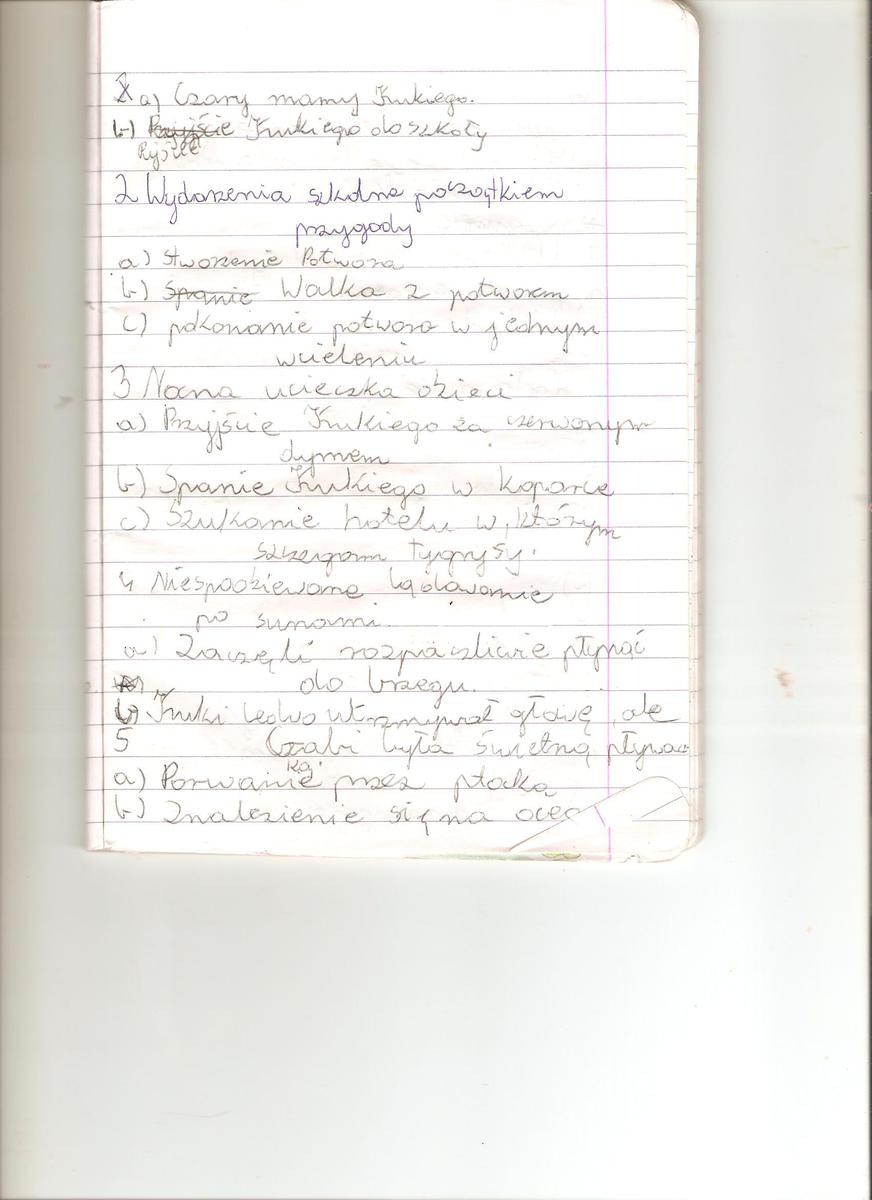 a) Czary mamy Kukiego.
b) Przyjście Kukiego do szkoły
Pyjście
2 Wydarzenia szkolne początkiem
przygody
a) stworzenie Potwora
b) Spanie Walka z potworem
c) pokonanie potwora w jednym
wcieleniu
3 Nocna ucieczka dzieci
a) Przyjście Kukiego za czerwonym
dymem
b) Spanie Kukiego w koparce
c) Szukanie hotelu w, którym
szczegom tygrysy.
4 Niespodziewane lądowanie
po sunami.
a) Zaczęli rozpaczliwie płynąć
do brzegu.
b) Kuki ledwo utrzmywał głowę, ale
5 Gabi była świetną pływac
ką.
a) Porwanie przez ptaka
b) Znalezienie się na oce